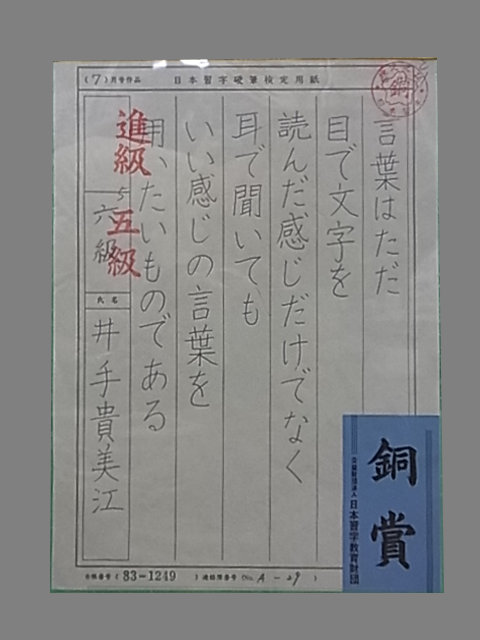 (7)月号作品 日本習字硬筆検定用紙
銅
言葉はただ
目で文字を
読んだ感じだけでなく
耳で聞いても
いい感じの言葉を
用いたいものである
進級 五級
5
六級
氏名
井手貴美江
銅賞
公益財団法人 日本習字教育財団
(83-1249) (No. A-29)